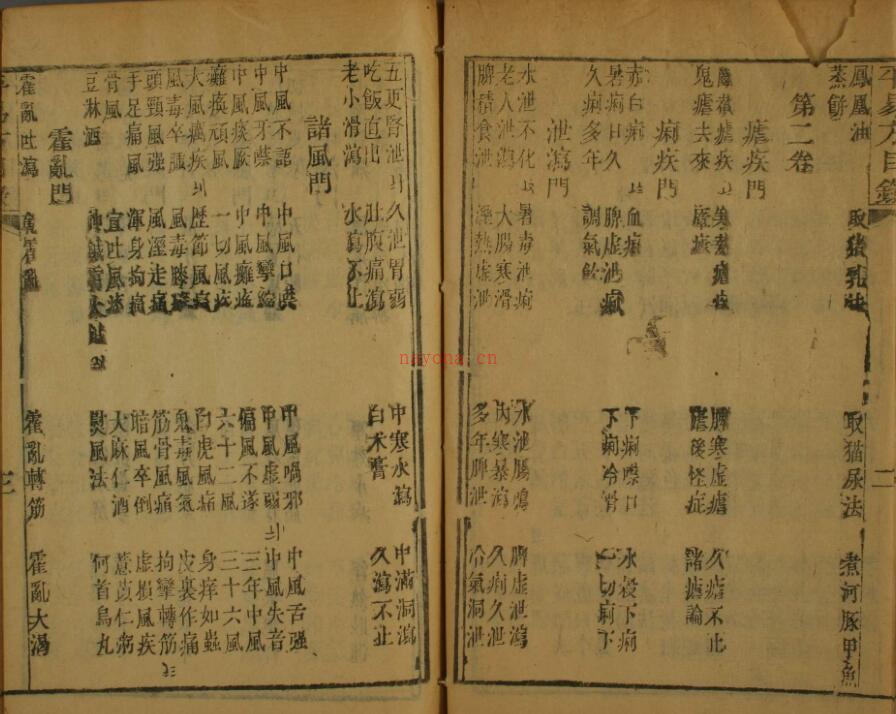 鳳凰油 取猪乳法 取猫尿法 煮河豚甲魚
蒸餅
第二卷
瘧疾門
久瘧不止
鬼瘧去來 瘴瘧 瘧後怪症 諸瘧論
痢疾門
赤白痢 血痢 下痢噤口 水穀下痢
暑痢日久 脾虛泄痢 下痢冷骨 一切痢下
久痢多年 調氣飲
泄瀉門
水泄不化 暑毒泄痢 水泄腸鳴 脾虛泄瀉
老人泄瀉 大腸寒滑 內寒暴瀉 久痢久泄
脾積食泄 溼熱虛泄 多年脾泄 冷氣洞泄
五更腎泄 久泄胃弱 中寒水瀉 中滿洞瀉
吃飯直出 肚腹痛瀉 白朮膏 久瀉不止
老小滑瀉 水瀉不止
諸風門
中風不語 中風口噤 中風喎邪 中風舌強
中風牙噤 中風攣縮 中風虛 中風失音
中風痰厥 中風癱瘓 偏風不遂 三年中風
癱瘓頑風 一切風疾 六十二風 三十六風
大風癘疾 歷節風痛 白虎風痛 身痒如蟲
風毒卒 風毒膝痛 鬼毒風氣 皮裏作痛
頭頸風強 風溼走痛 筋骨風痛 拘攣轉筋
手足痛風 渾身拘痛 暗風卒倒 虛損風疾
骨風 宜吐風痰 大麻仁酒 薏苡仁粥
豆淋酒 熨風法 何首烏丸
霍亂門
霍亂吐瀉 霍亂 霍亂轉筋 霍亂大渴